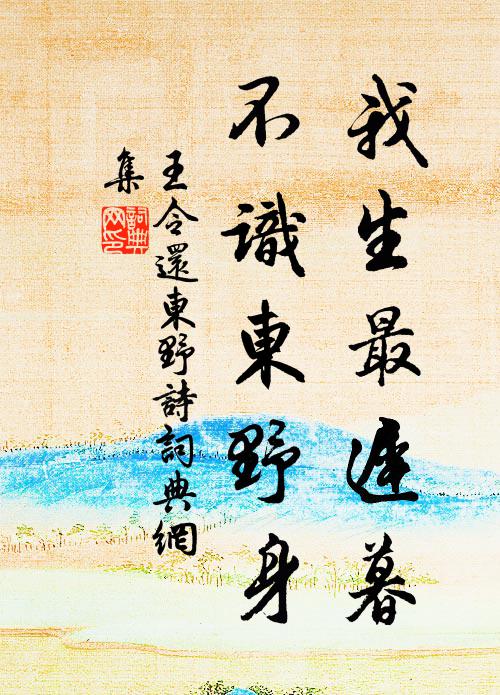 我生最遲暮
不識東野身
王令還東野詩詞典網
集
詞典網印